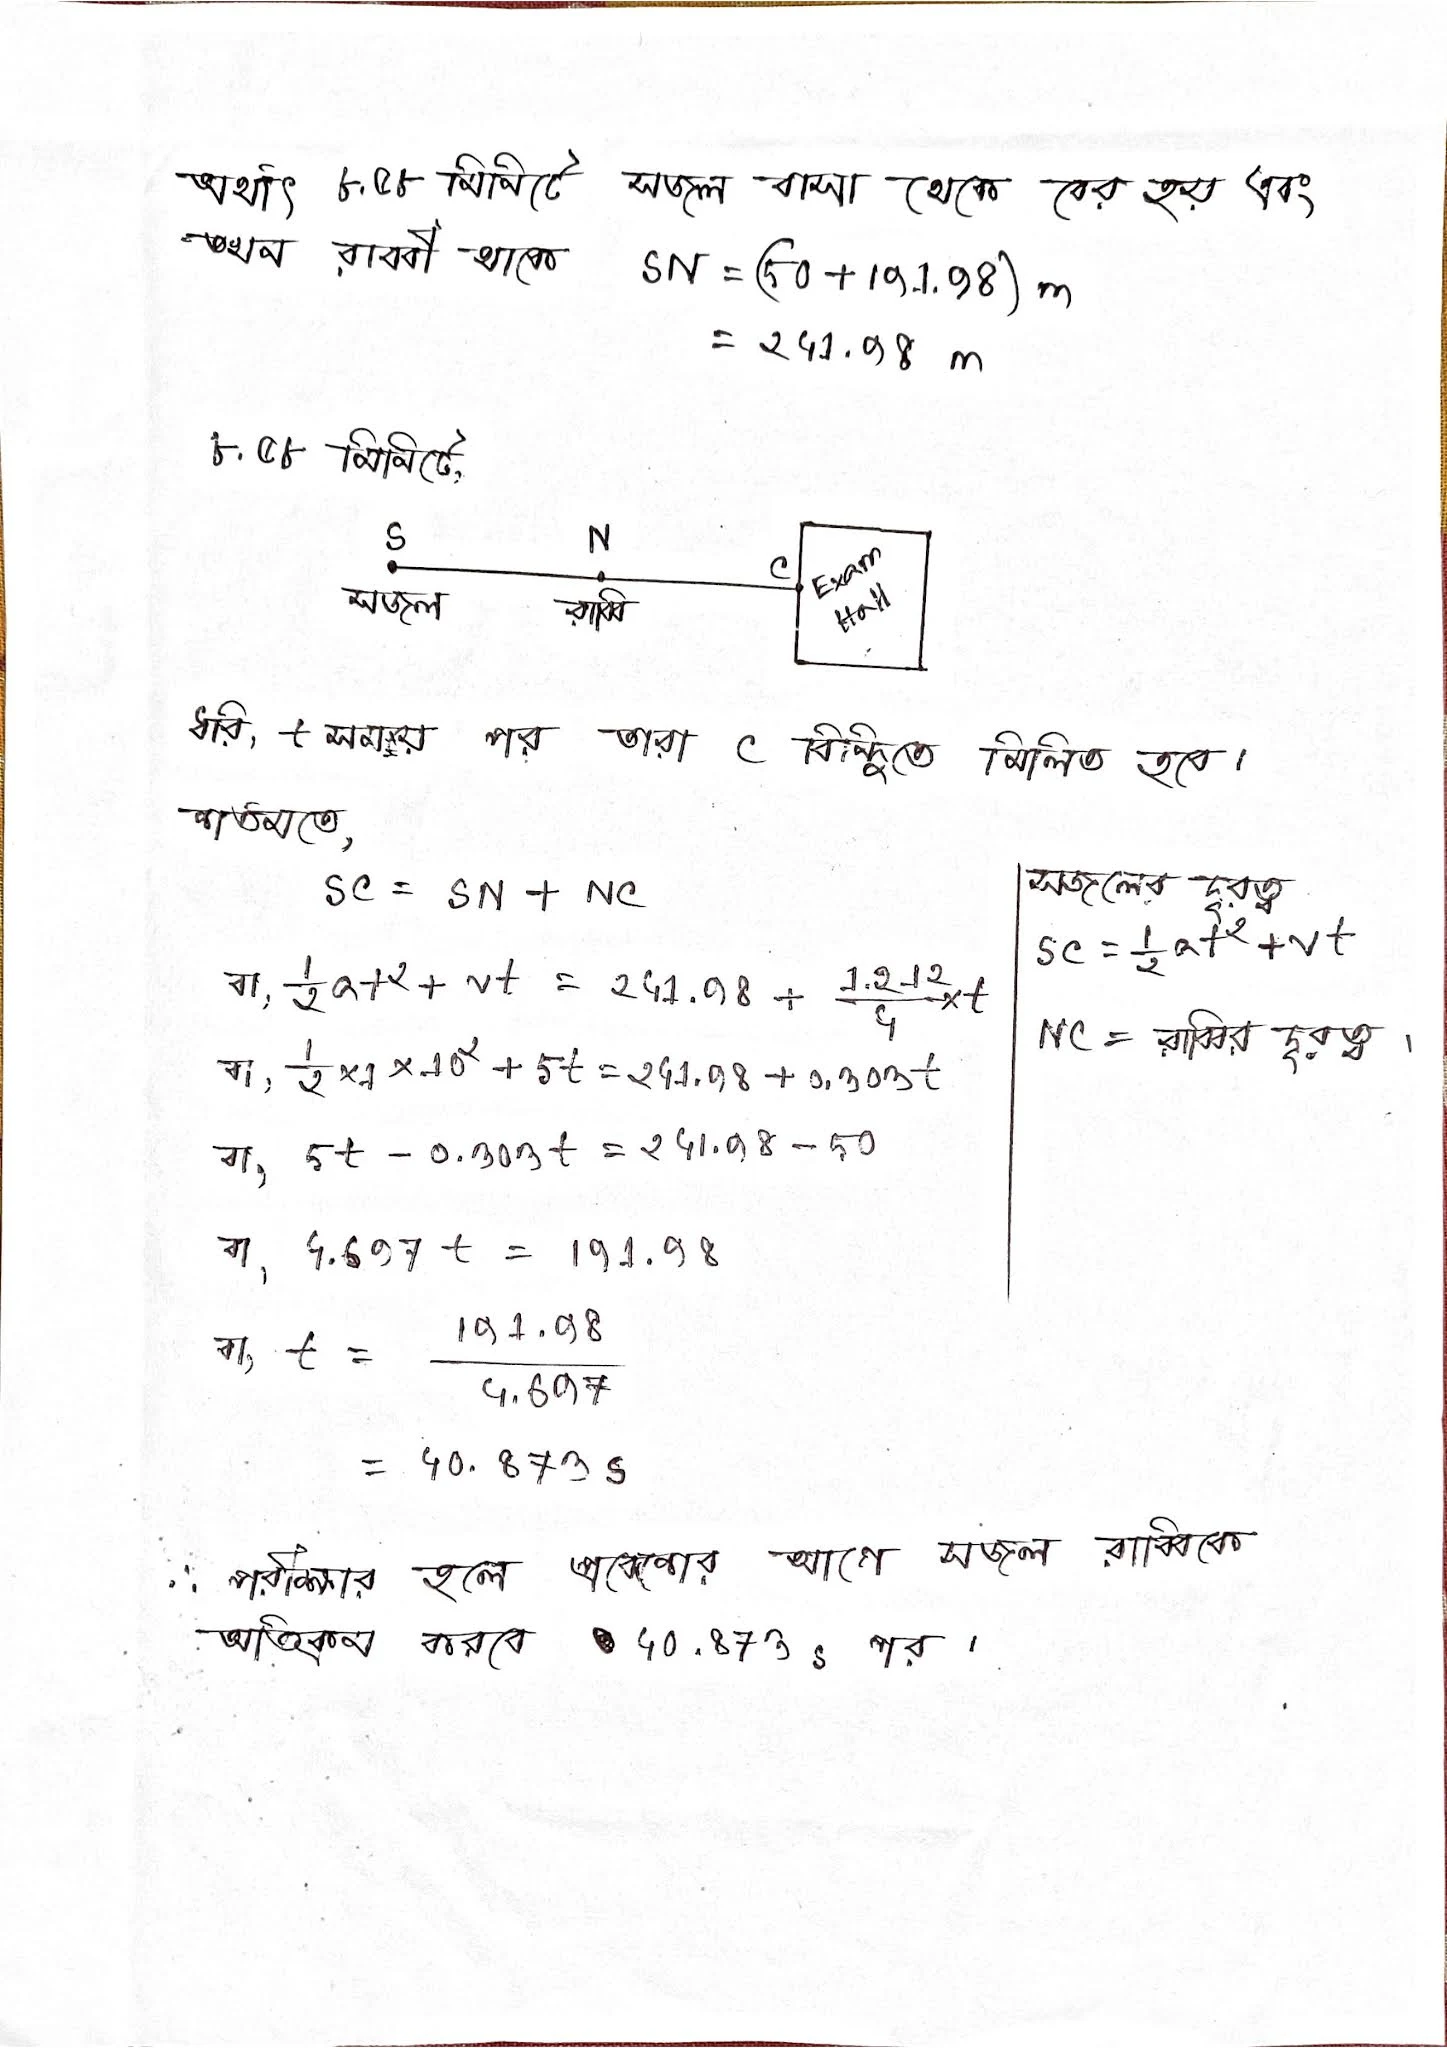 অর্থাৎ ৮.৫৮ মিনিটে সজল বাসা থেকে বের হয় এবং
তখন রাববী থাকে SN = (50 + 191.98) m
= 241.98 m
৮.৫৮ মিনিটে,
S N C Exam Hall
সজল রাব্বি
ধরি, t সময় পর তারা C বিন্দুতে মিলিত হবে।
শর্তমতে,
SC = SN + NC
বা, 1/2 at² + vt = 241.98 + 1.212/4 × t
বা, 1/2 × 1 × 10² + 5t = 241.98 + 0.303t
বা, 5t - 0.303t = 241.98 - 50
বা, 4.697 t = 191.98
বা, t = 191.98/4.697
= 40.873 s
সজলের দূরত্ব
SC = 1/2 at² + vt
NC = রাব্বির দূরত্ব।
∴ পরীক্ষার হলে প্রবেশের আগে সজল রাব্বিকে
অতিক্রম করবে 40.873 s পর।